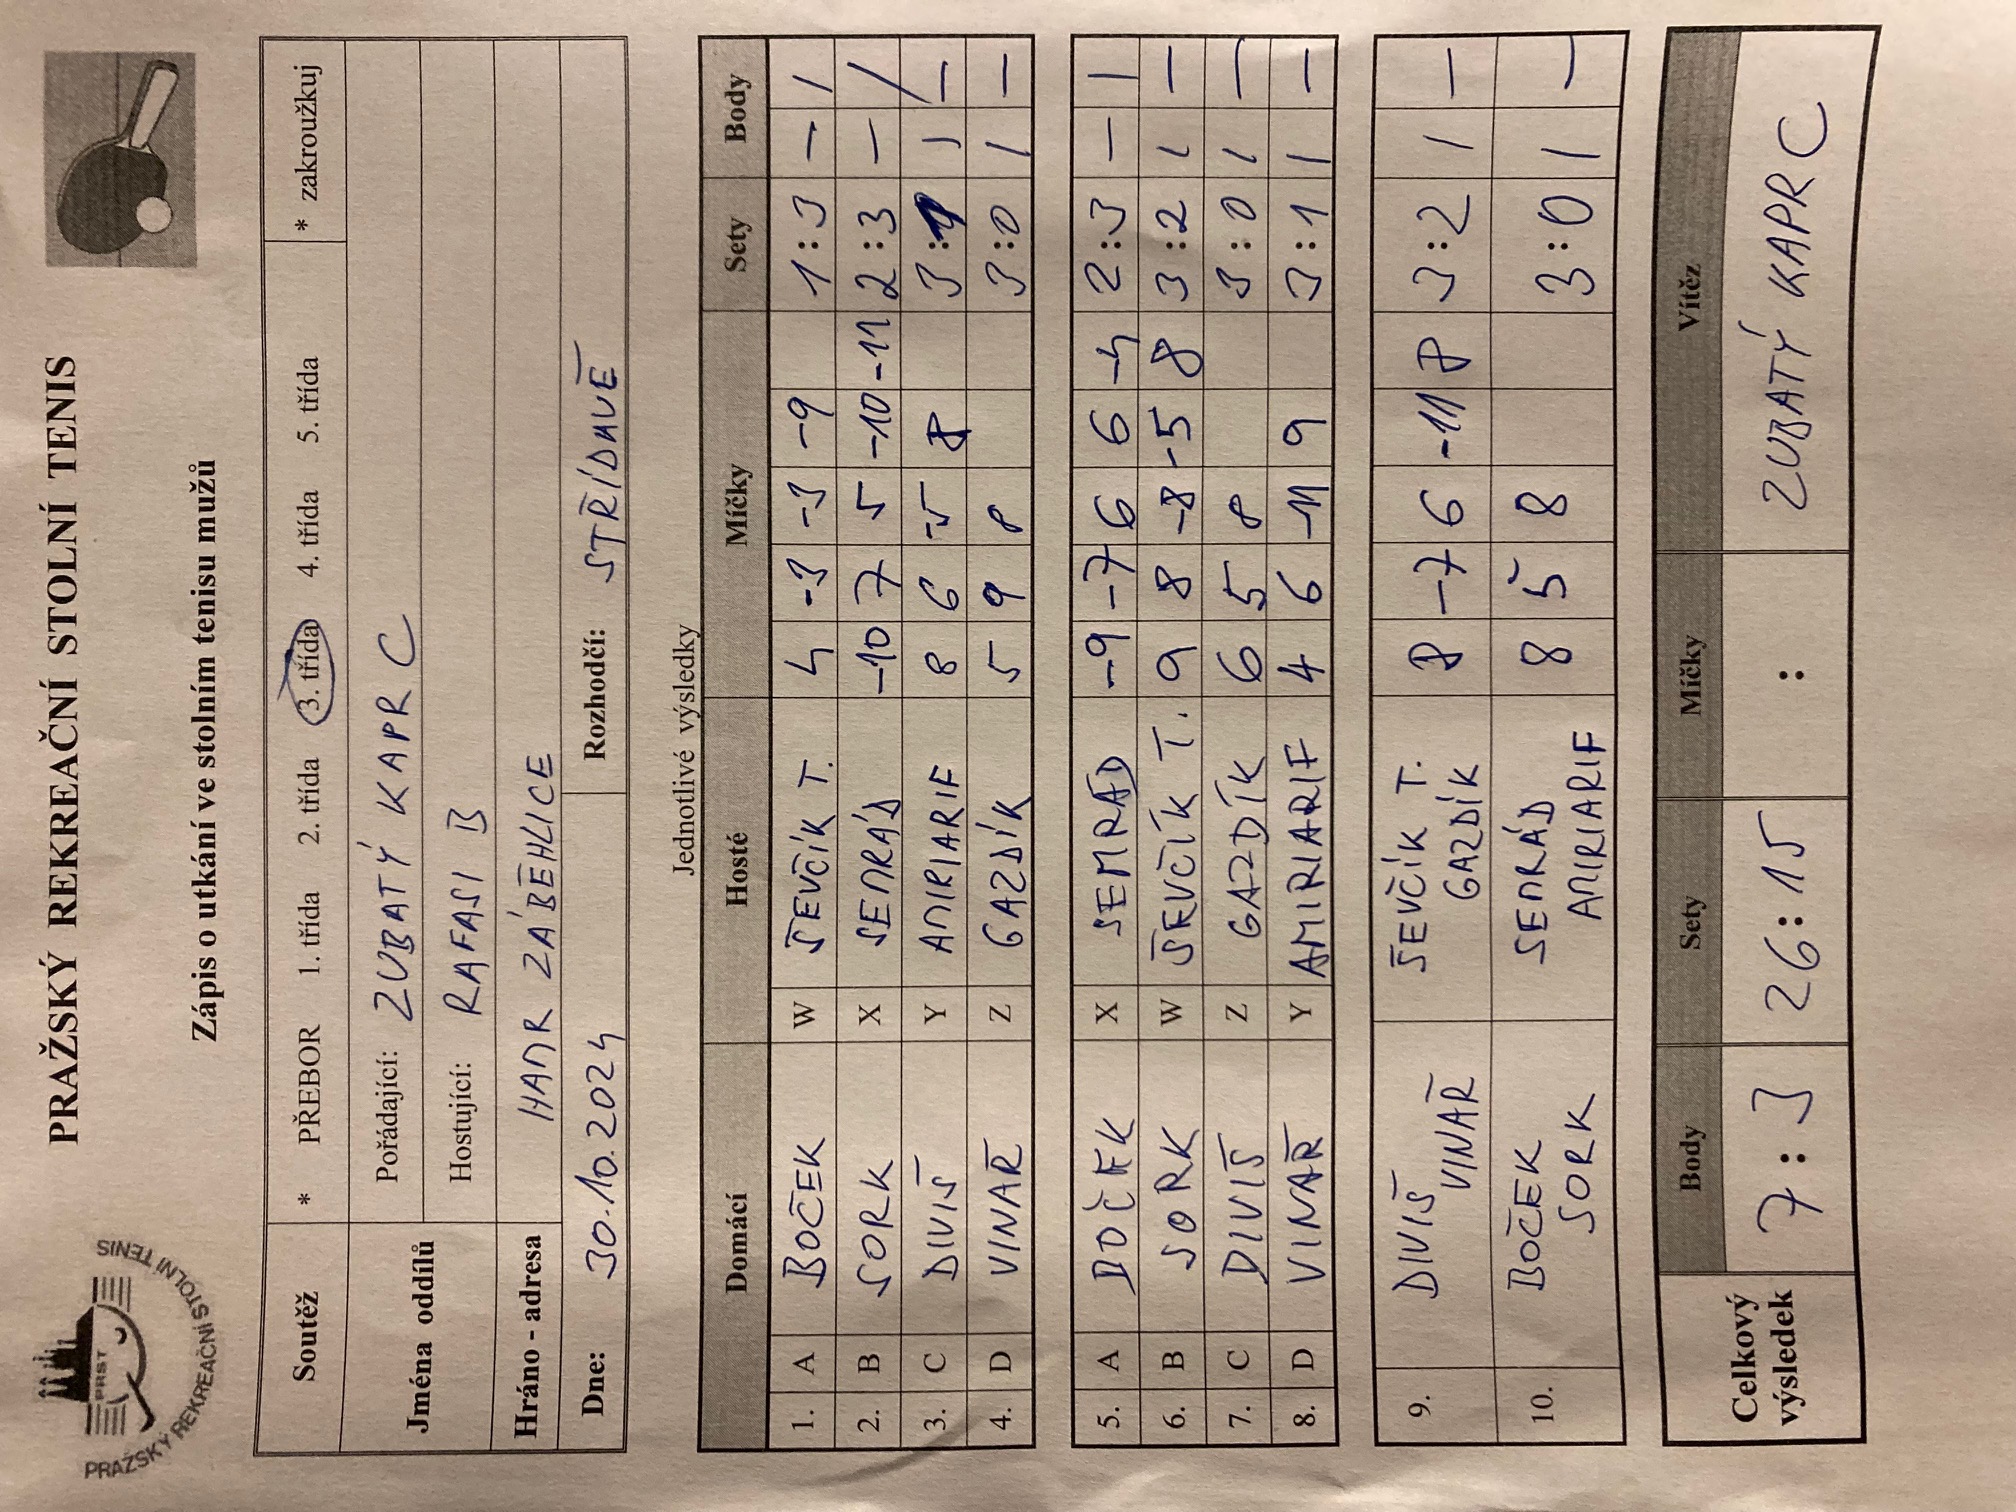 PRAŽSKÝ REKREAČNÍ STOLNÍ TENIS
PRST
PRAŽSKÝ REKREAČNÍ STOLNÍ TENIS
Zápis o utkání ve stolním tenisu mužů
Soutěž * PŘEBOR 1. třída 2. třída 3. třída 4. třída 5. třída * zakroužkuj
Jména oddílů
Pořádající: ZUBATÝ KAPR C
Hostující: RAFASI B
Hráno - adresa HAMR ZÁBĚHLICE
Dne: 30.10.2024 Rozhodčí: STŘÍDAVĚ
Jednotlivé výsledky
Domácí Hosté Míčky Sety Body
1. A BOČEK W ŠEVČÍK T. 4 -3 -3 -9 1:3 – 1
2. B SORK X SEMRÁD -10 7 5 -10 -11 2:3 – /
3. C DIVIŠ Y AMIRIARIF 8 6 -5 8 3:1 1 –
4. D VINAŘ Z GAZDÍK 5 9 8 3:0 1 –
5. A BOČEK X SEMRÁD -9 -7 6 6 -4 2:3 – 1
6. B SORK W ŠEVČÍK T. 9 8 -8 -5 8 3:2 1 –
7. C DIVIŠ Z GAZDÍK 6 5 8 3:0 1 –
8. D VINAŘ Y AMIRIARIF 4 6 -11 9 3:1 1 –
9. DIVIŠ ŠEVČÍK T. 8 -7 6 -11 8 3:2 1 –
VINAŘ GAZDÍK
10. BOČEK SEMRÁD 8 5 8 3:0 1 –
SORK AMIRIARIF
Celkový výsledek Body Sety Míčky Vítěz
7:3 26:15 : ZUBATÝ KAPR C